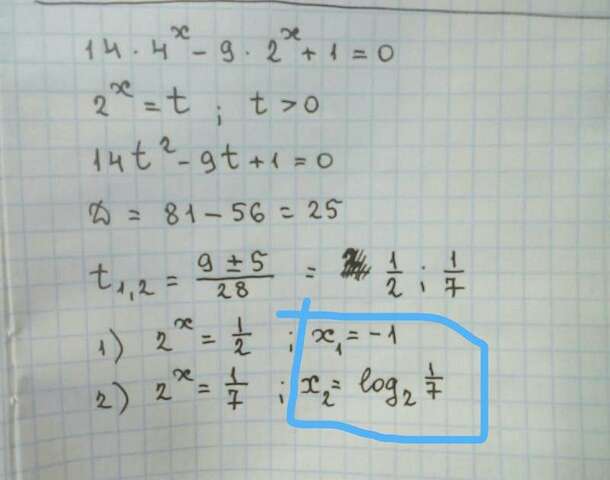 14 · 4^x − 9 · 2^x + 1 = 0
2^x = t ; t > 0
14t^2 − 9t + 1 = 0
D = 81 − 56 = 25
t_{1,2} = (9 ± 5)/28 = 1/2 ; 1/7
1) 2^x = 1/2 ; x_1 = −1
2) 2^x = 1/7 ; x_2 = log_2 1/7